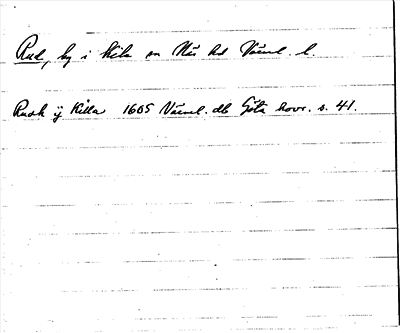 Rud, by i Kila sn Näs hd Värml. l.
Rudh ÿ Killa 1605 Värml. db Göta hovr. s. 41.